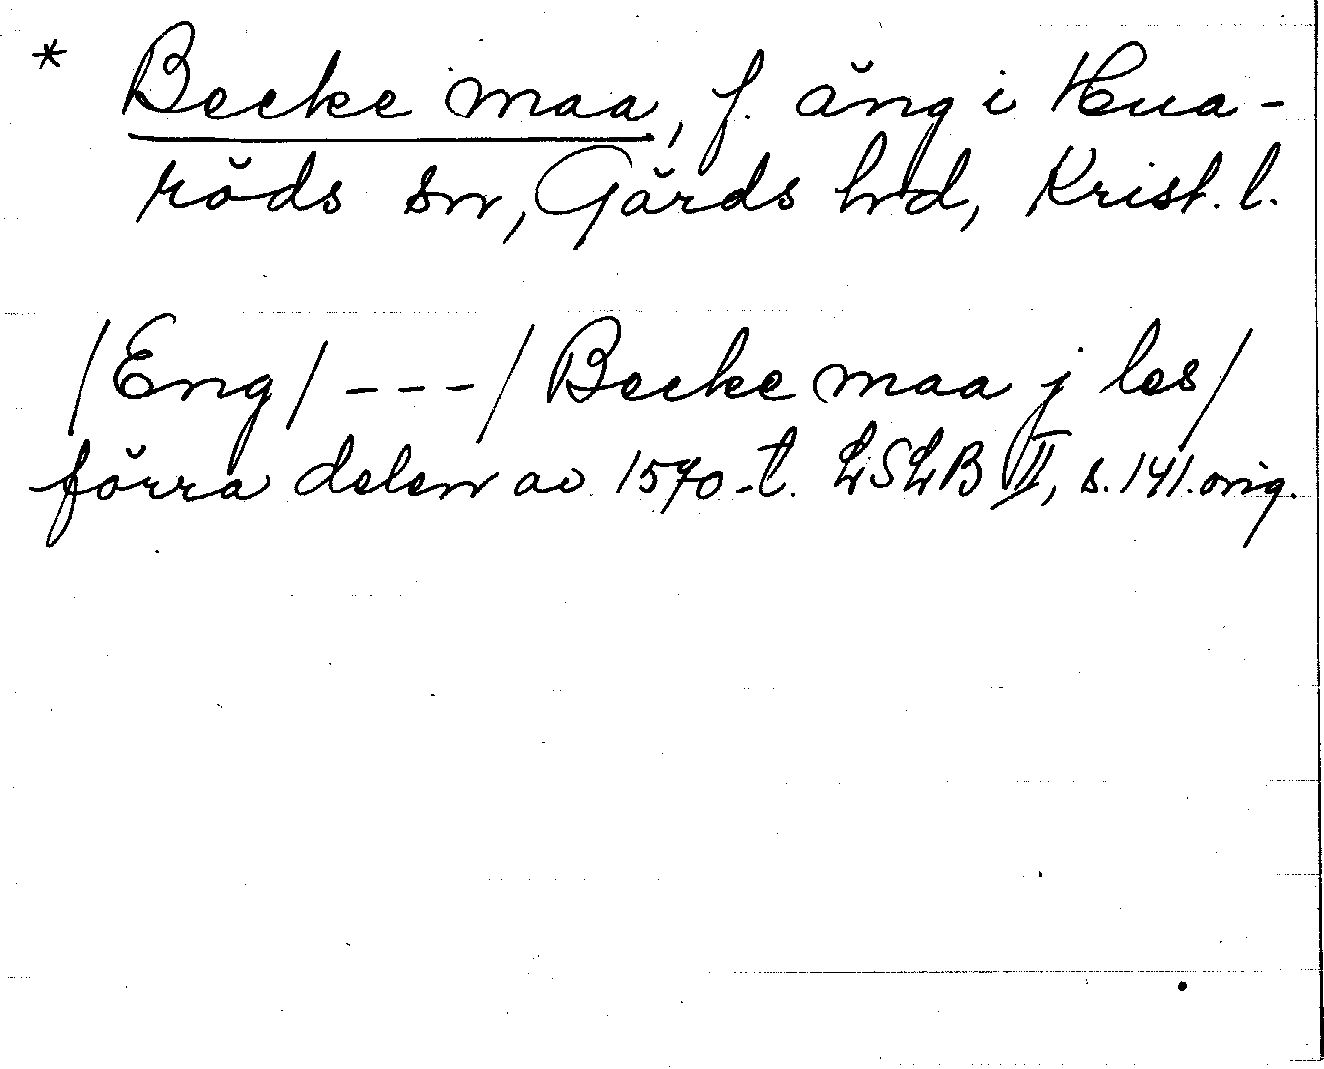 * Becke maa, f. äng i Hua-
röds sn, Gärds hd, Krist. l.
/Eng/ - - - / Becke maa j les/
förra delen av 1570-t. LSLB II, s. 141. orig.